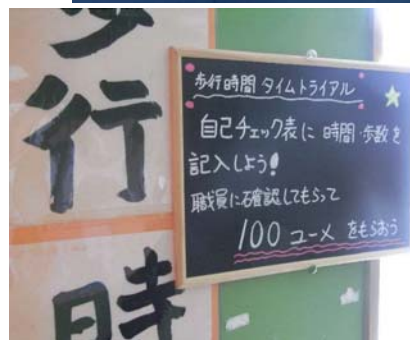 歩
行
時
歩行時間 タイムトライアル
自己チェック表に 時間・歩数を
記入しよう!
職員に確認してもらって
100 ユーメ をもらおう